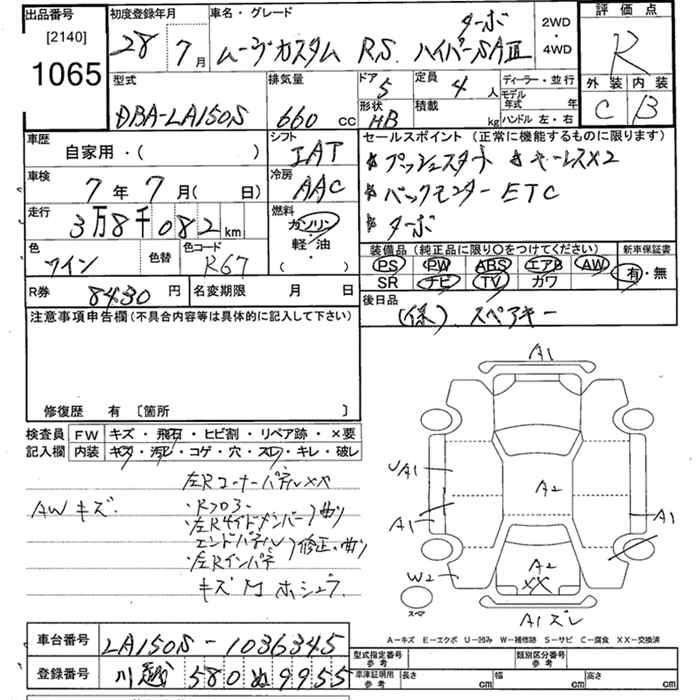 出品番号
[2140]
1065
初度登録年月
28年 7月
車名・グレード
ターボ
ムーヴカスタム RS ハイパーSAⅢ
2WD
・
4WD
評価点
R
外装 内装
C B
型式
DBA-LA150S
排気量
660 cc
ドア
5
形状
HB
定員
4 人
積載
kg
ディーラー・並行
モデル年式 年
ハンドル 左・右
車歴
自家用・( )
シフト
IAT
車検
7年7月( 日)
冷房
AAC
走行
3万8千082km
燃料
ガソリン
軽・油
( ・ )
色
ワイン
色替
色コード
R67
R券
8430円
名変期限 月 日
セールスポイント(正常に機能するものに限ります)
★プッシュスタート ★キーレスX2
★バックモニター ETC
★ターボ
装備品(純正品に限り○をつけてください)
新車保証書
PS PW ABS エアB AW
SR ナビ TV カワ
有・無
後日品
(保)、スペアキー
注意事項申告欄(不具合内容等は具体的に記入して下さい)
修復歴 有 〔箇所 〕
検査員記入欄
FW キズ・飛石・ヒビ割・リペア跡・×要
内装 キズ・汚レ・コゲ・穴・スレ・キレ・破レ
AWキズ
左Rコーナーパネル××
・Rフロア
・左Rサイドメンバー)曲り
エンドパネル
・左Rインパネ)修正・曲り
キズ
A1
UA1
A1
A2
A1
W2
A2
XX
A1ズレ
スペア
A-キズ E-エクボ U-凹み W-補修跡 S-サビ C-腐食 XX-交換済
車台番号
LA150S-1036345
登録番号
川越 580 ぬ 9955
型式指定番号
参考
類別区分番号
参考
車庫証明用
参考
長さ cm
幅 cm
高さ cm